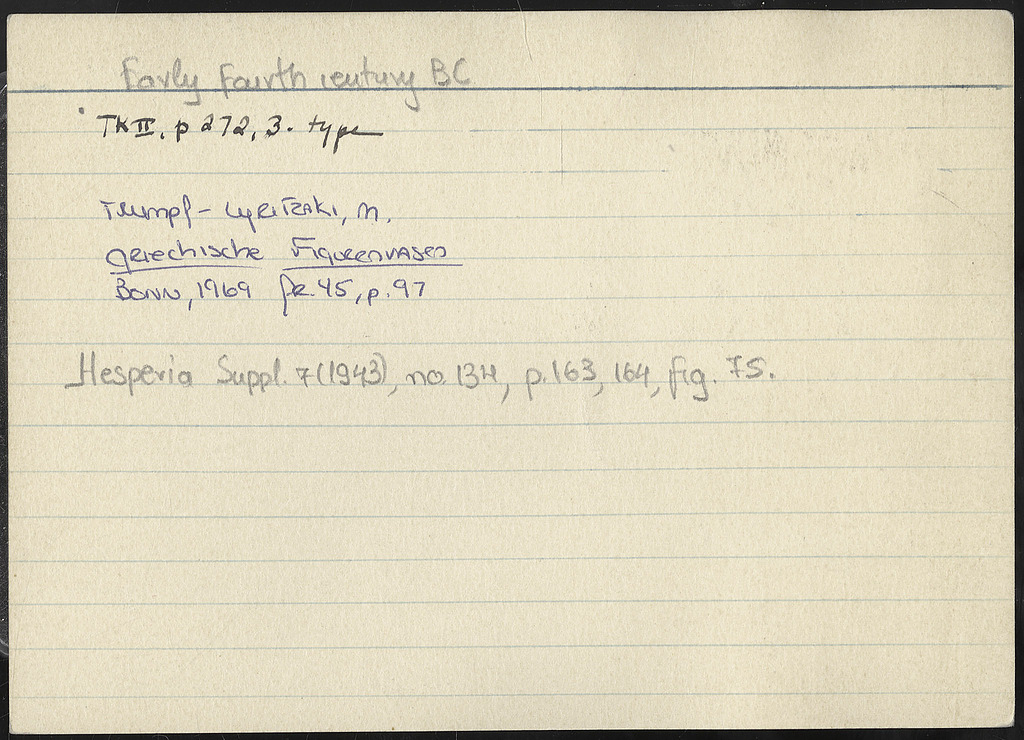 Early Fourth century BC
TK II, p 272, 3. type
Trumpf-Lyritzaki, M.
griechische Figurenvasen
Bonn, 1969 fr. 45, p. 97
Hesperia Suppl. 7 (1943), no. 134, p. 163, 164, fig. 75.